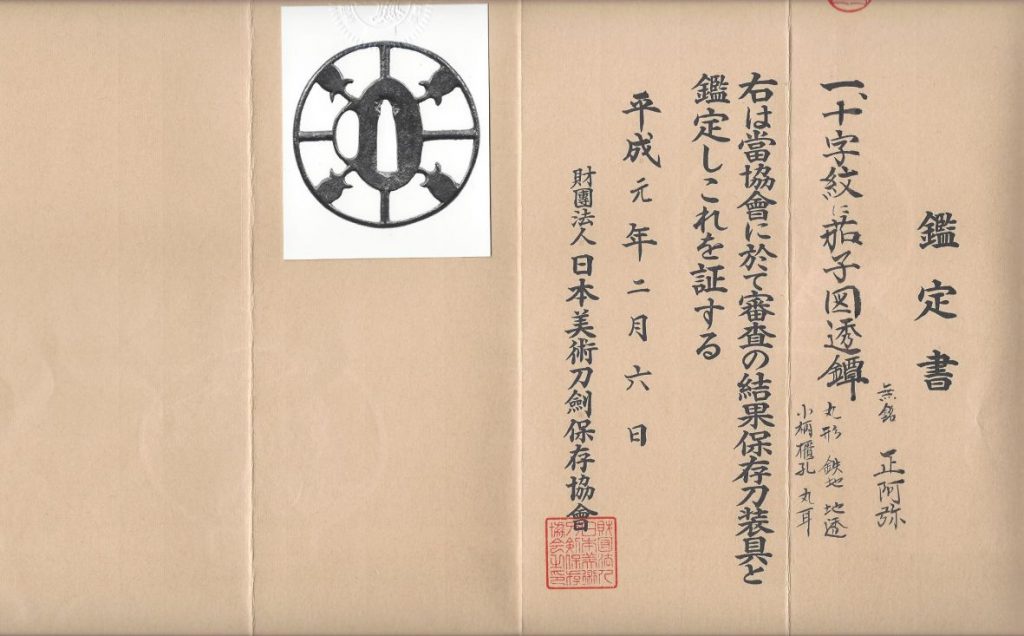 鑑定書
一、十字紋に茄子図透鐔
無銘 正阿弥
丸形 鉄地 地透
小柄櫃孔 丸耳
右は當協會に於て審査の結果保存刀装具と
鑑定しこれを証する
平成元年二月六日
財團法人日本美術刀劍保存協會